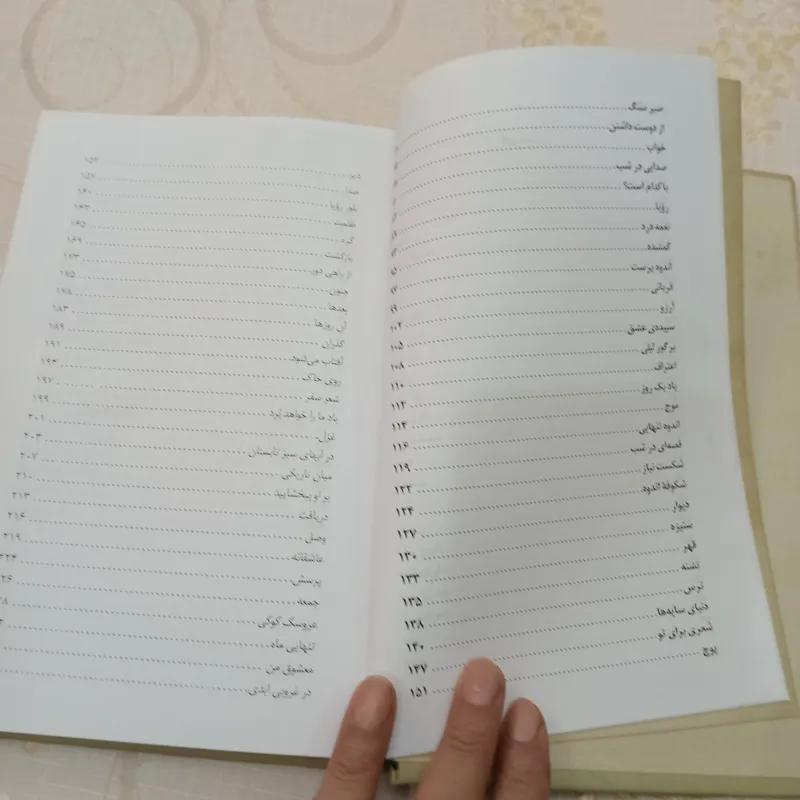 صبر سنگ
از دوست داشتن
خواب
صدایی در شب
با کدام است؟
رؤیا
نغمه درد
گمشده
اندوه پرست
قربانی
آرزو ۱۰۲
سپیده‌ی عشق ۱۰۵
بر گور لیلی ۱۰۸
اعتراف ۱۱۰
یاد یک روز ۱۱۲
موج ۱۱۴
اندوه تنهایی ۱۱۶
قصه‌ای در شب ۱۱۹
شکست نیاز ۱۲۲
شکوفهٔ اندوه ۱۲۴
دیوار ۱۲۷
ستیزه ۱۳۰
قهر ۱۳۳
تشنه ۱۳۵
ترس ۱۳۸
دنیای سایه‌ها ۱۴۰
شعری برای تو ۱۴۷
پوچ ۱۵۱
دیر ۱۵۳
صدا ۱۵۶
بلور رؤیا ۱۶۰
ظلمت ۱۶۳
گره ۱۶۵
بازگشت ۱۶۹
از راهی دور ۱۷۳
جنون ۱۷۵
بعدها ۱۷۸
آن روزها ۱۸۳
گذران ۱۸۹
آفتاب می‌شود ۱۹۱
روی خاک ۱۹۴
شعر سفر ۱۹۷
باد ما را خواهد برد ۱۹۹
غزل ۲۰۱
در آبهای سبز تابستان ۲۰۳
میان تاریکی ۲۰۷
بر او ببخشایید ۲۱۰
دریافت ۲۱۳
وصل ۲۱۶
عاشقانه ۲۱۹
پرسش ۲۲۴
جمعه
عروسک کوکی
تنهایی ماه
معشوق من
در غروبی ابدی